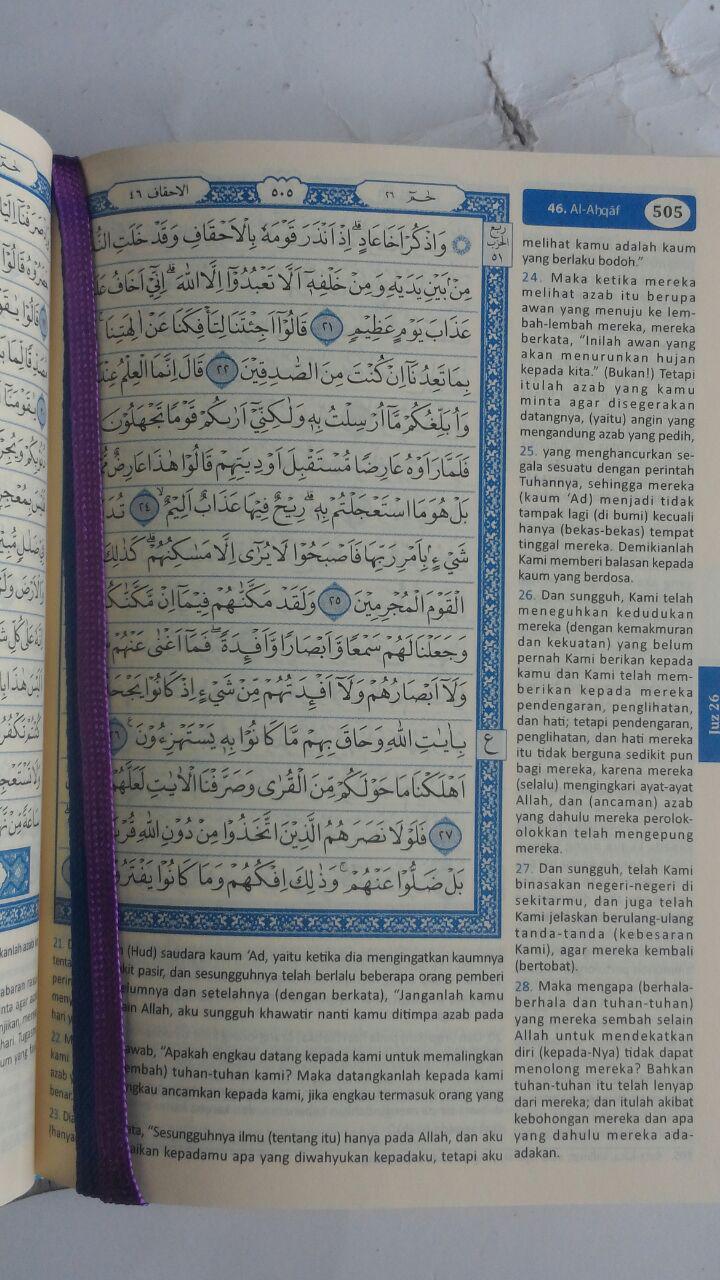 الاحقاف ٤٦
٥٠٥
حٰمٓ ٢٦
ربع
الحزب
٥١
وَاذْكُرْ اَخَا عَادٍۗ اِذْ اَنْذَرَ قَوْمَهٗ بِالْاَحْقَافِ وَقَدْ خَلَتِ
مِنْۢ بَيْنِ يَدَيْهِ وَمِنْ خَلْفِهٖٓ اَلَّا تَعْبُدُوْٓا اِلَّا اللّٰهَ ۗ اِنِّيْٓ اَخَافُ
عَذَابَ يَوْمٍ عَظِيْمٍ ٢١ قَالُوْٓا اَجِئْتَنَا لِتَأْفِكَنَا عَنْ اٰلِهَتِنَا
بِمَا تَعِدُنَآ اِنْ كُنْتَ مِنَ الصّٰدِقِيْنَ ٢٢ قَالَ اِنَّمَا الْعِلْمُ
وَاُبَلِّغُكُمْ مَّآ اُرْسِلْتُ بِهٖ وَلٰكِنِّيْٓ اَرٰىكُمْ قَوْمًا تَجْهَلُوْنَ
فَلَمَّا رَاَوْهُ عَارِضًا مُّسْتَقْبِلَ اَوْدِيَتِهِمْ قَالُوْا هٰذَا عَارِضٌ
بَلْ هُوَ مَا اسْتَعْجَلْتُمْ بِهٖ ۗ رِيْحٌ فِيْهَا عَذَابٌ اَلِيْمٌ ۙ ٢٤
شَيْءٍۢ بِاَمْرِ رَبِّهَا فَاَصْبَحُوْا لَا يُرٰٓى اِلَّا مَسٰكِنُهُمْ ۗ كَذٰلِكَ
الْقَوْمَ الْمُجْرِمِيْنَ ٢٥ وَلَقَدْ مَكَّنّٰهُمْ فِيْمَآ اِنْ
وَجَعَلْنَا لَهُمْ سَمْعًا وَّاَبْصَارًا وَّاَفْـِٕدَةً ۖ فَمَآ اَغْنٰى عَنْهُمْ
وَلَآ اَبْصَارُهُمْ وَلَآ اَفْـِٕدَتُهُمْ مِّنْ شَيْءٍ اِذْ كَانُوْا
بِاٰيٰتِ اللّٰهِ وَحَاقَ بِهِمْ مَّا كَانُوْا بِهٖ يَسْتَهْزِءُوْنَ ࣖ
ع
اَهْلَكْنَا مَا حَوْلَكُمْ مِّنَ الْقُرٰى وَصَرَّفْنَا الْاٰيٰتِ لَعَلَّهُمْ
٢٧ فَلَوْلَا نَصَرَهُمُ الَّذِيْنَ اتَّخَذُوْا مِنْ دُوْنِ اللّٰهِ
بَلْ ضَلُّوْا عَنْهُمْ ۚ وَذٰلِكَ اِفْكُهُمْ وَمَا كَانُوْا
21.
(Hud) saudara kaum ‘Ad, yaitu ketika dia mengingatkan kaumnya
pasir, dan sesungguhnya telah berlalu beberapa orang pemberi
dan setelahnya (dengan berkata), “Janganlah kamu
Allah, aku sungguh khawatir nanti kamu ditimpa azab pada
22.
“Apakah engkau datang kepada kami untuk memalingkan
tuhan-tuhan kami? Maka datangkanlah kepada kami
ancamkan kepada kami, jika engkau termasuk orang yang
benar.
23.
“Sesungguhnya ilmu (tentang itu) hanya pada Allah, dan aku
kepadamu apa yang diwahyukan kepadaku, tetapi aku
46. Al-Aḥqāf 505
melihat kamu adalah kaum
yang berlaku bodoh.”
24. Maka ketika mereka
melihat azab itu berupa
awan yang menuju ke lem-
bah-lembah mereka, mereka
berkata, “Inilah awan yang
akan menurunkan hujan
kepada kita.” (Bukan!) Tetapi
itulah azab yang kamu
minta agar disegerakan
datangnya, (yaitu) angin yang
mengandung azab yang pedih,
25. yang menghancurkan se-
gala sesuatu dengan perintah
Tuhannya, sehingga mereka
(kaum ‘Ad) menjadi tidak
tampak lagi (di bumi) kecuali
hanya (bekas-bekas) tempat
tinggal mereka. Demikianlah
Kami memberi balasan kepada
kaum yang berdosa.
26. Dan sungguh, Kami telah
meneguhkan kedudukan
mereka (dengan kemakmuran
dan kekuatan) yang belum
pernah Kami berikan kepada
kamu dan Kami telah mem-
berikan kepada mereka
pendengaran, penglihatan,
dan hati; tetapi pendengaran,
penglihatan, dan hati mereka
itu tidak berguna sedikit pun
bagi mereka, karena mereka
(selalu) mengingkari ayat-ayat
Allah, dan (ancaman) azab
yang dahulu mereka perolok-
olokkan telah mengepung
mereka.
27. Dan sungguh, telah Kami
binasakan negeri-negeri di
sekitarmu, dan juga telah
Kami jelaskan berulang-ulang
tanda-tanda (kebesaran
Kami), agar mereka kembali
(bertobat).
28. Maka mengapa (berhala-
berhala dan tuhan-tuhan)
yang mereka sembah selain
Allah untuk mendekatkan
diri (kepada-Nya) tidak dapat
menolong mereka? Bahkan
tuhan-tuhan itu telah lenyap
dari mereka; dan itulah akibat
kebohongan mereka dan apa
yang dahulu mereka ada-
adakan.
Juz 26